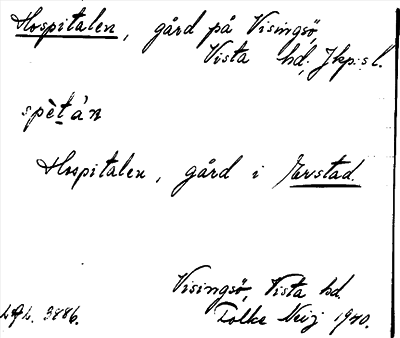 Hospitalen, gård på Visingsö,
Vista hd, Jkp:s l.
spètán
Hospitalen, gård i Ervstad.
Visingsö, Vista hd.
3886. Folke Neij 1940.